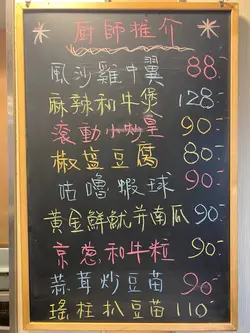 廚師推介
風沙雞中翼 88.-
麻辣和牛煲 128.-
滾動小炒皇 90-
椒盐豆腐 80-
咕嚕蝦球 90-
黃金鮮魷并南瓜 90-
京葱和牛粒 90-
蒜茸炒豆苗 90-
瑤柱扒豆苗 110-